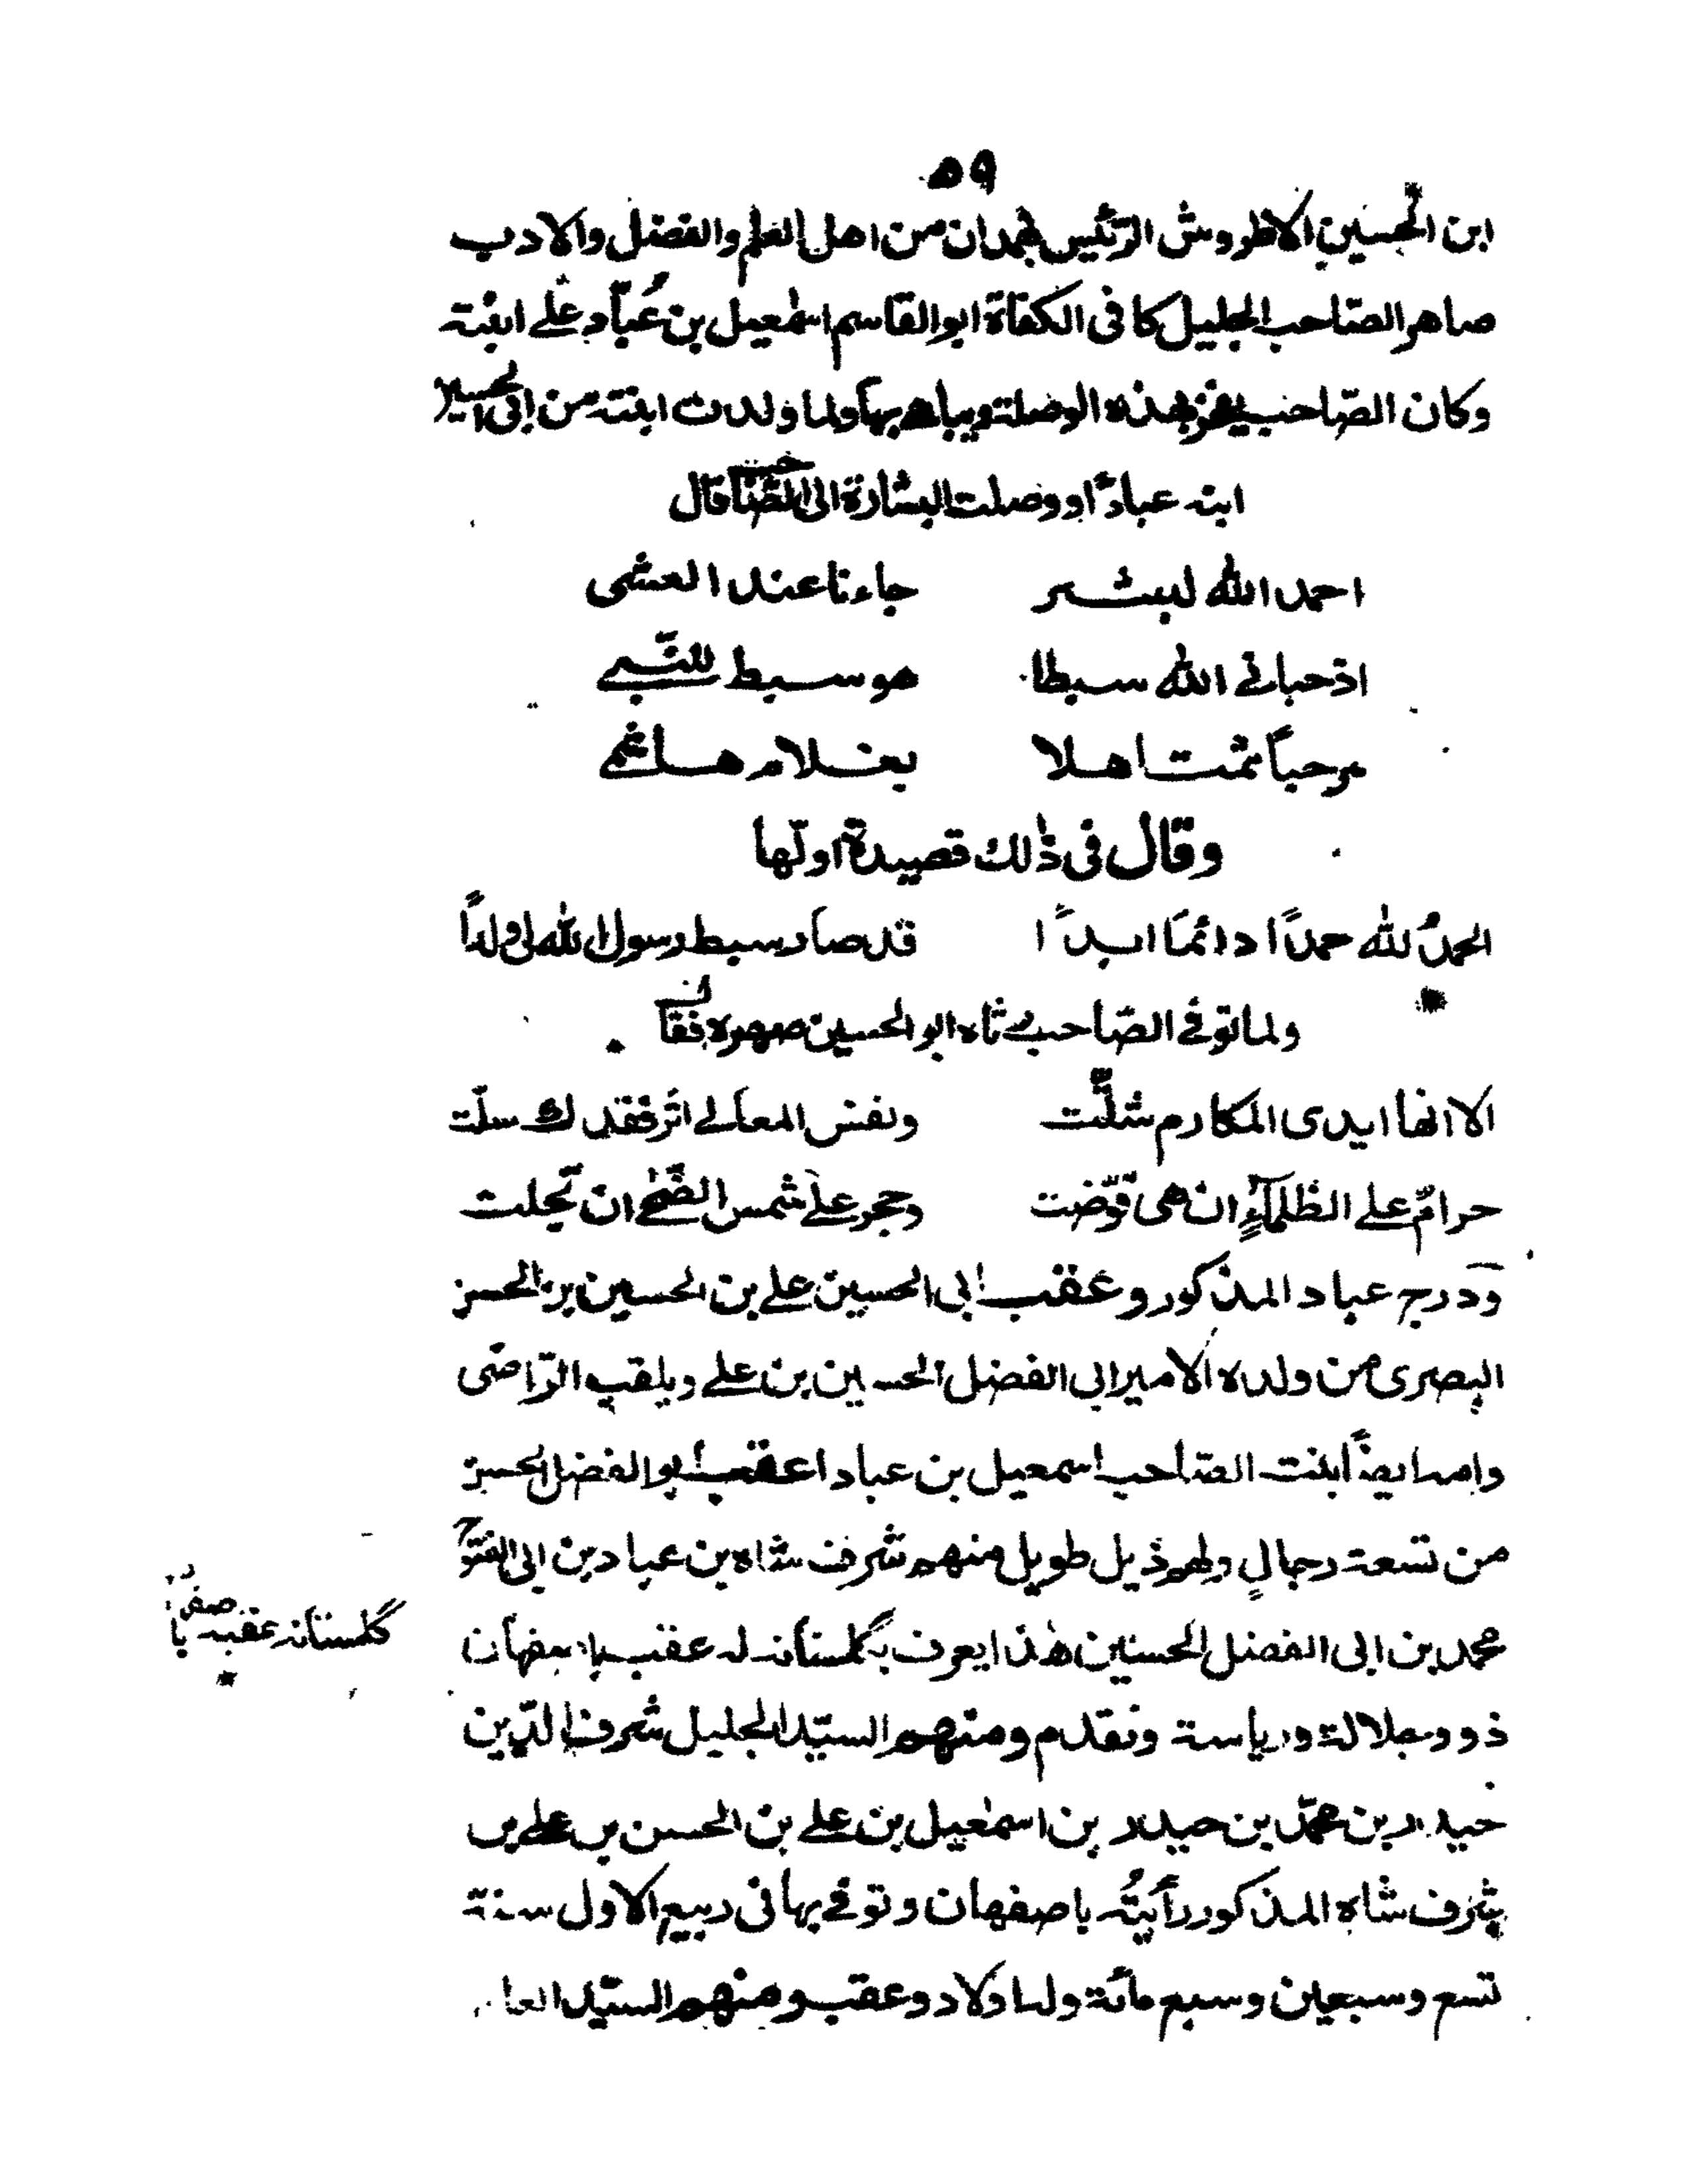 ٥٩
ابن الحسين الاطروش الرّئيس بهمدان من اهل العلم والفضل والادب
صاهر الصّاحب الجليل كافى الكفاة ابو القاسم اسمٰعيل بن عُبّاد على ابنته
وكان الصّاحب يفخر بهذه الوصلة ويباهى بها ولما ولدت ابنته من ابى الحسين
ابنه عباداً ووصلت البشارة الى الصّاحب قال
احمد الله لبشر جاءنا عند العشى
اذ حبانى الله سبطا هو سبط للنّبى
مرحباً ثمّت اهلا بغلام هاشمى
وقال فى ذٰلك قصيدة اولّها
الحمدُ لله حمدًا دائمًا ابدًا قد صار سبط رسول الله لى ولداً
ولما توفى الصّاحب رثاه ابو الحسين صهره فقال
الا انها ايدى المكارم شلّت ونفس المعالى اثر فقدك سلّت
حرامٌ على الظلمآءِ ان هى قوّضت وحجر على شمس الضّحٰى ان تجلت
ودرج عباد المذكور وعقب ابى الحسين على بن الحسين بن الحسن
البصرى من ولده الامير ابى الفضل الحسين بن على ويلقب الرّاضى
وامه ايضاً ابنت الصّاحب اسمعيل بن عباد اعقب ابو الفضل الحسين
من تسعة رجالٍ ولهم ذيل طويل منهم شرف شاه بن عباد بن ابى الفتوح
محمد بن ابى الفضل الحسين هٰذا يعرف بگلستانه له عقب باصفهان
گلستانه عقبه باصفهان
ذوو جلالة ورياسة وتقدم ومنهم السيّد الجليل شرف الدّين
حيدر بن محمّد بن حيدر بن اسمٰعيل بن على بن الحسن بن على بن
شرف شاه المذكور رأيتُه باصفهان وتوفى بها فى ربيع الاول سنة
تسع وسبعين وسبع مائة وله اولاد وعقب ومنهم السيّد العا